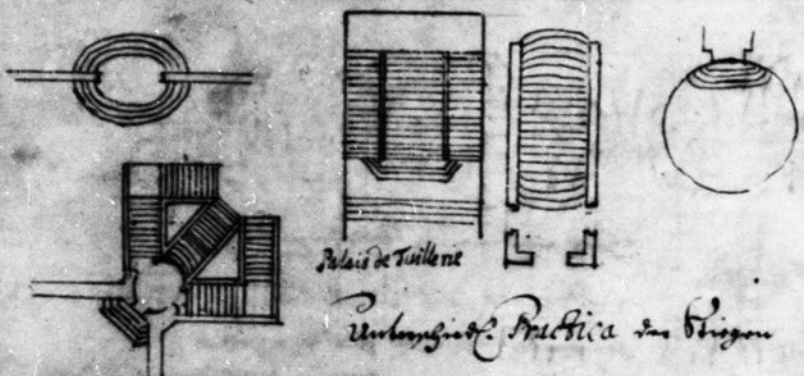 Palais de Tuillerie
Unterschiedl. Practica der Stiegen